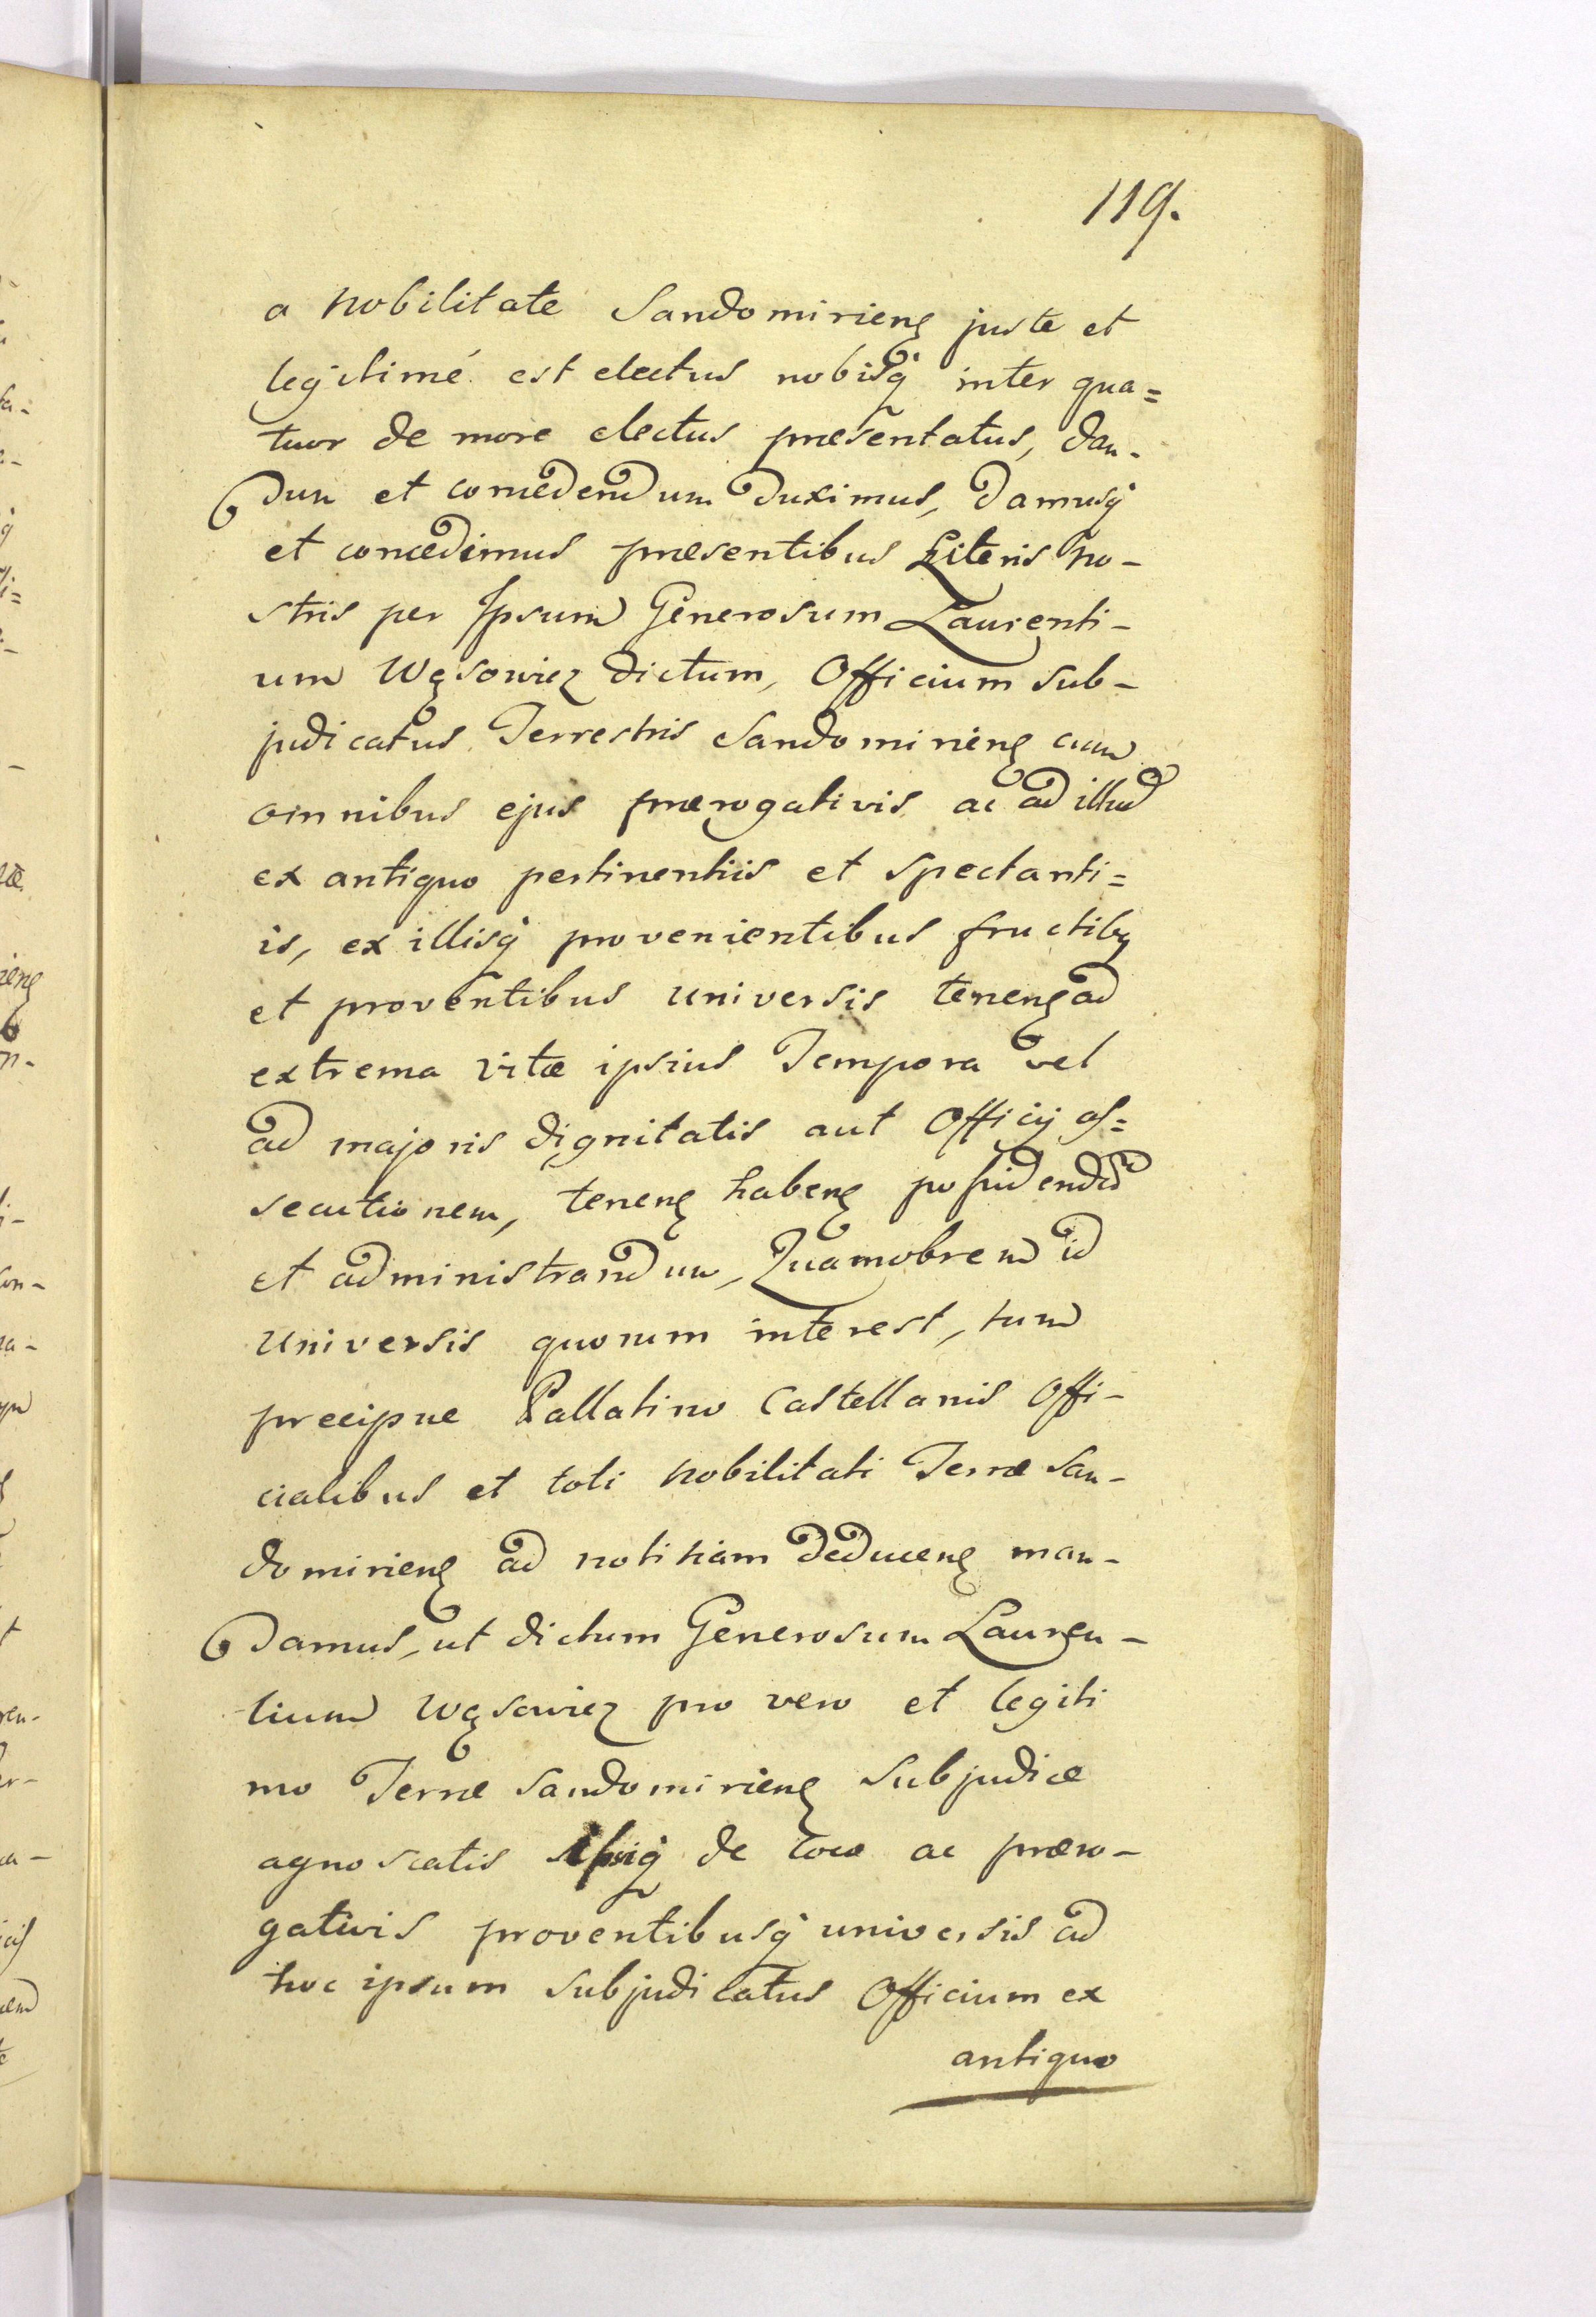 119.
a Nobilitate Sandomirieng juste et
legitimé est electus nobisq inter qua=
tuor de more electus præsentatus, dan-
dum et concedendum duximus, damusq
et concedimus præsentibus Literis no-
stris per Ipsum Generosum Laurenti-
um Wąsowicz dictum, Officium Sub-
judicatus Terrestris Sandomirieng cum
omnibus ejus prærogativis ac ad illud
ex antiquo pertinentiis et spectanti=
is, ex illisq provenientibus fructibg
et proventibus universis teneng ad
extrema vitæ ipsius Tempora vel
ad majoris dignitatis aut Officij as=
secutionem, teneng habeng possidendum
et administrandum, Quamobrem id
universis quorum interest, tum
precipue Pallatino Castellanis Offi-
cialibus et toti Nobilitati Terræ San-
domirieng ad notitiam deduceng man-
damus, ut dictum Generosum Lauren-
tium Wąsowicz pro vero et legiti
mo Terræ Sandomirieng Subjudice
agnoscatis ipsiq de loco ac præro-
gativis proventibusq universis ad
hoc ipsum Subjudicatus Officium ex
antiquo